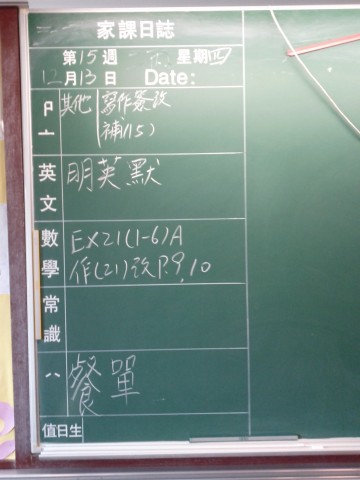 家課日誌
第15週 星期四
12月13日 Date:
其他 寫作簽改
補(15)
英文 明英默
數學 EX21(1-6)A
作(21)改P.9,10
常識
餐單
值日生